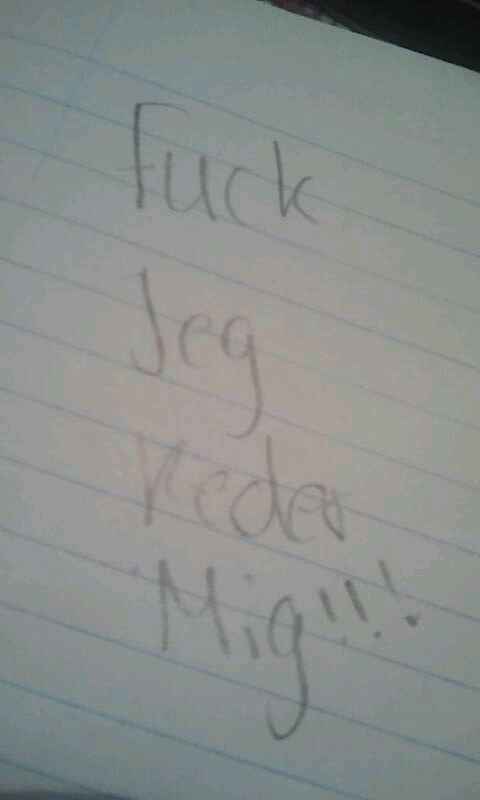 Fuck
Jeg
Keder
Mig!!!